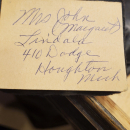 Mrs John
(Margaret)
Lindala
410 Dodge
Houghton
Mich